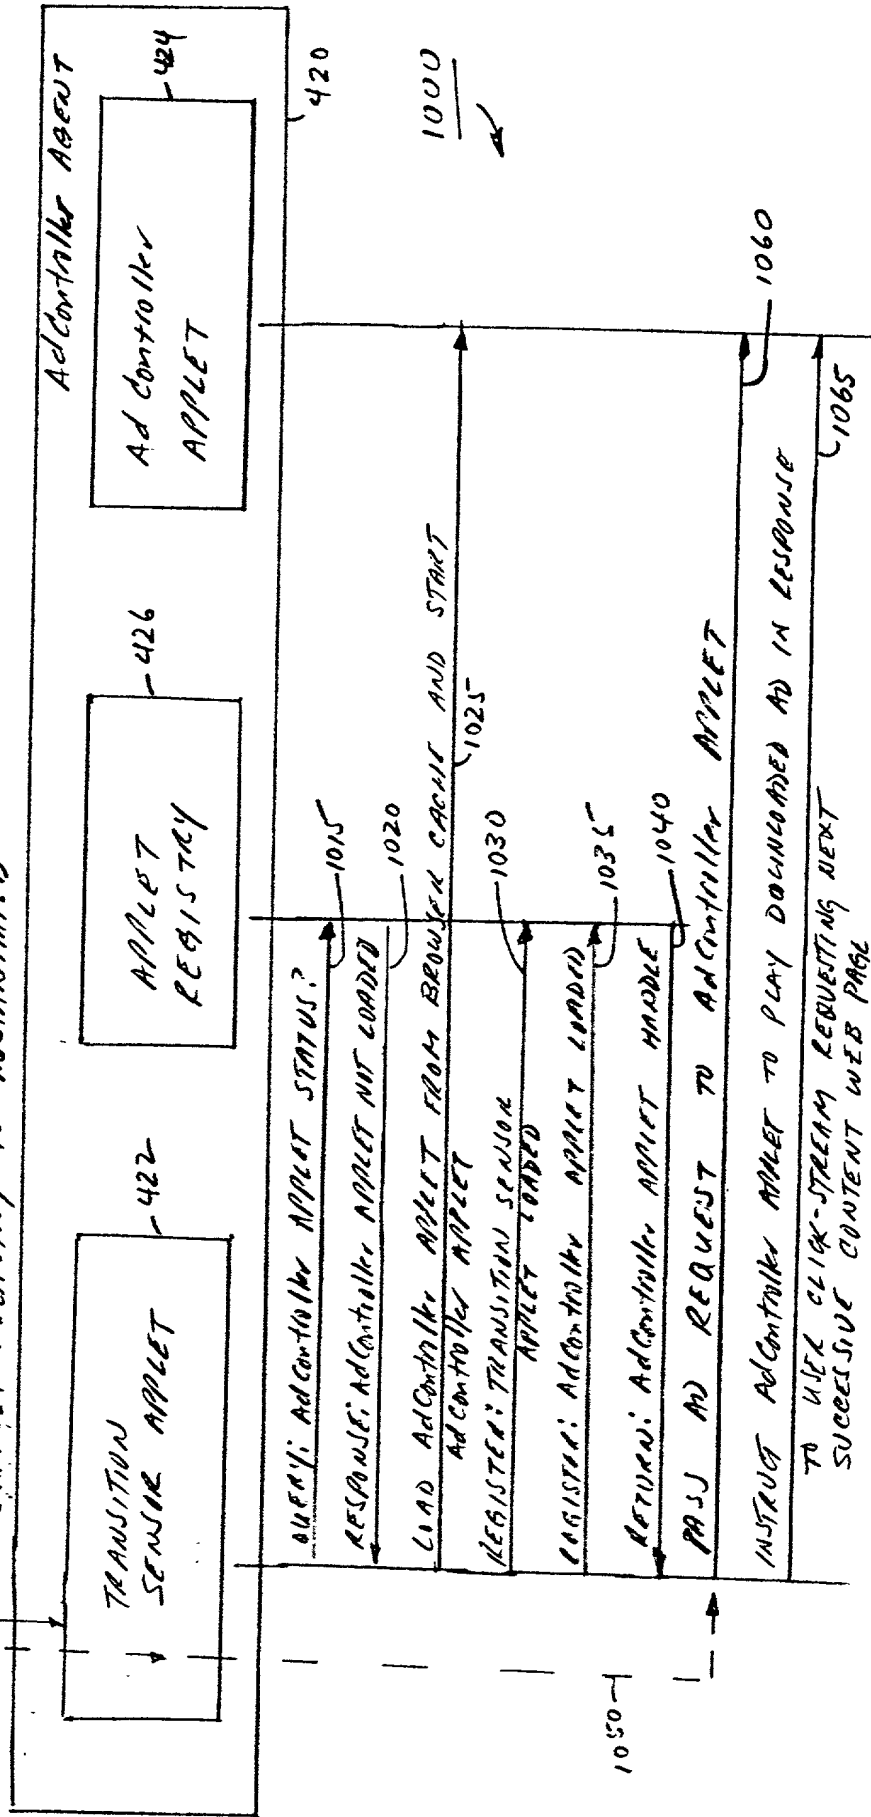 AdController AGENT
TRANSITION
SENSOR APPLET
422
APPLET
REGISTRY
426
Ad Controller
APPLET
424
420
1000
QUERY: AdController APPLET STATUS?
1015
RESPONSE: AdController APPLET NOT LOADED
1020
LOAD AdController APPLET FROM BROWSER CACHE AND START
AdController APPLET
1025
REGISTER: TRANSITION SENSOR
APPLET LOADED
1030
REGISTER: AdController APPLET LOADED
1035
RETURN: AdController APPLET HANDLE
1040
1050
PASS AD REQUEST TO AdController APPLET
1060
INSTRUCT AdController APPLET TO PLAY DOWNLOADED AD IN RESPONSE
TO USER CLICK-STREAM REQUESTING NEXT
SUCCESSIVE CONTENT WEB PAGE
1065